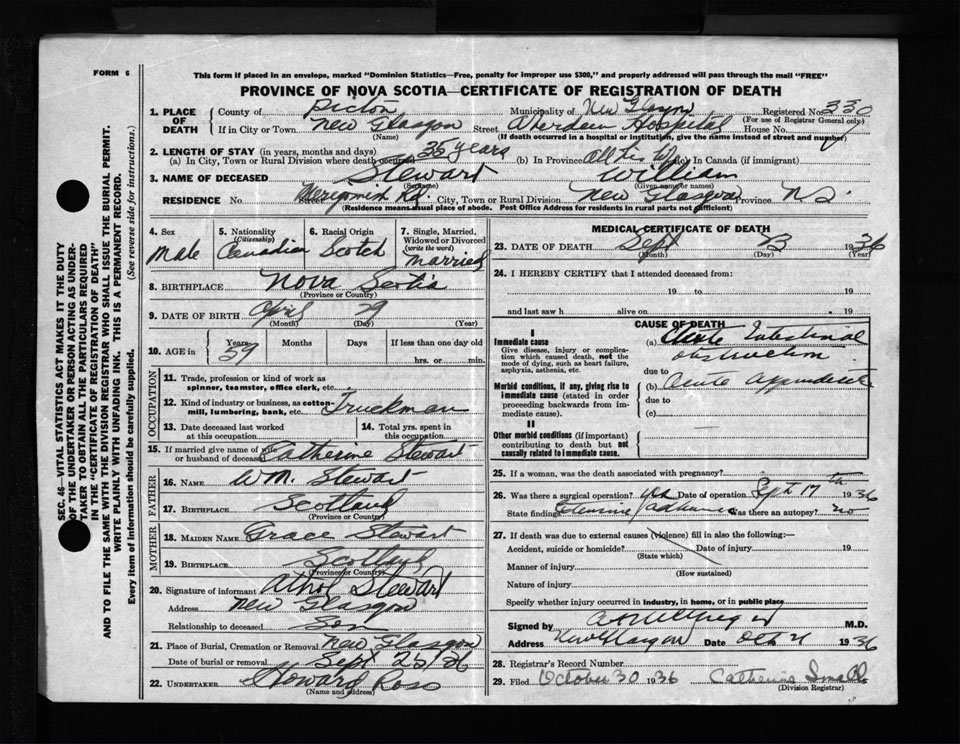 FORM 6
This form if placed in an envelope, marked "Dominion Statistics—Free, penalty for improper use $300," and properly addressed will pass through the mail "FREE"
PROVINCE OF NOVA SCOTIA—CERTIFICATE OF REGISTRATION OF DEATH
SEC. 46 – VITAL STATISTICS ACT MAKES IT THE DUTY
OF THE UNDERTAKER OR PERSON ACTING AS UNDER-
TAKER TO OBTAIN ALL THE PARTICULARS REQUIRED
IN THE "CERTIFICATE OF REGISTRATION OF DEATH"
AND TO FILE THE SAME WITH THE DIVISION REGISTRAR WHO SHALL ISSUE THE BURIAL PERMIT.
WRITE PLAINLY WITH UNFADING INK. THIS IS A PERMANENT RECORD.
Every item of information should be carefully supplied. (See reverse side for instructions.)
1. PLACE OF DEATH County of Pictou Municipality of New Glasgow Registered No. 330
(For use of Registrar General only)
If in City or Town New Glasgow Street Aberdeen Hospital House No.
(Name) (If death occurred in a hospital or institution, give the name instead of street and number)
2. LENGTH OF STAY (in years, months and days)
(a) In City, Town or Rural Division where death occurred 35 years (b) In Province All his life (c) In Canada (if immigrant)
3. NAME OF DECEASED Stewart William
(Surname) (Given name or names)
RESIDENCE No Street Merigomish Rd. City, Town or Rural Division New Glasgow Province N.S.
(Residence means usual place of abode. Post Office Address for residents in rural parts not sufficient)
4. Sex Male
5. Nationality (Citizenship) Canadian
6. Racial Origin Scotch
7. Single, Married, Widowed or Divorced (write the word) married
8. BIRTHPLACE Nova Scotia
(Province or Country)
9. DATE OF BIRTH April 29
(Month) (Day) (Year)
10. AGE in Years 59 Months Days If less than one day old
hrs. or min.
OCCUPATION
11. Trade, profession or kind of work as
spinner, teamster, office clerk, etc.
12. Kind of industry or business, as cotton-
mill, lumbering, bank, etc. Truckman
13. Date deceased last worked
at this occupation
14. Total yrs. spent in
this occupation
15. If married give name of wife
or husband of deceased Catherine Stewart
FATHER
16. NAME Wm. Stewart
17. BIRTHPLACE Scotland
(Province or Country)
MOTHER
18. MAIDEN NAME Grace Stewart
19. BIRTHPLACE Scotland
(Province or Country)
20. Signature of informant Athol Stewart
Address New Glasgow
Relationship to deceased Son
21. Place of Burial, Cremation or Removal New Glasgow
Date of burial or removal Sept 25/36
22. UNDERTAKER Howard Ross
(Name and address)
MEDICAL CERTIFICATE OF DEATH
23. DATE OF DEATH Sept 23 1936
(Month) (Day) (Year)
24. I HEREBY CERTIFY that I attended deceased from:
19 to 19
and last saw h alive on 19
CAUSE OF DEATH
I
Immediate cause
Give disease, injury or complica-
tion which caused death, not the
mode of dying, such as heart failure,
asphyxia, asthenia, etc.
(a) Acute Intestinal
obstruction
due to
Morbid conditions, if any, giving rise to
immediate cause (stated in order
proceeding backwards from im-
mediate cause).
(b) Acute appendicitis
due to
(c)
II
Other morbid conditions (if important)
contributing to death but not
causally related to immediate cause.
25. If a woman, was the death associated with pregnancy?
26. Was there a surgical operation? yes Date of operation Sept 17th 1936
State findings Was there an autopsy? no
27. If death was due to external causes (violence) fill in also the following:—
Accident, suicide or homicide? Date of injury 19
(State which)
Manner of injury
(How sustained)
Nature of injury
Specify whether injury occurred in industry, in home, or in public place
Signed by M.D.
Address New Glasgow Date Oct 21 1936
28. Registrar's Record Number
29. Filed October 30 1936 Catherine Small
(Division Registrar)